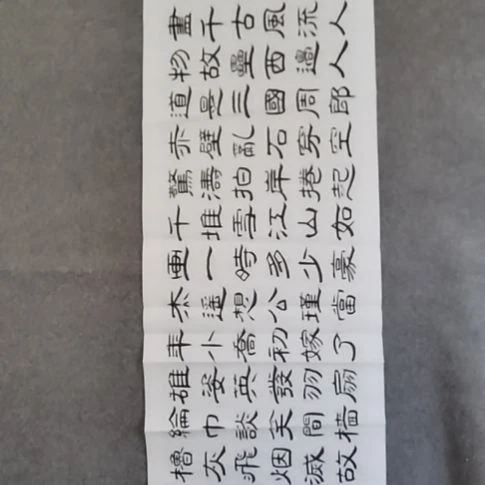 盡千古風流人
物故壘西邊人
道是三國周郎
赤壁亂石穿空
驚濤拍岸捲起
千堆雪江山如
畫一時多少豪
杰遙想公瑾當
年小喬初嫁了
雄姿英發羽扇
綸巾談笑間檣
櫓灰飛烟滅故